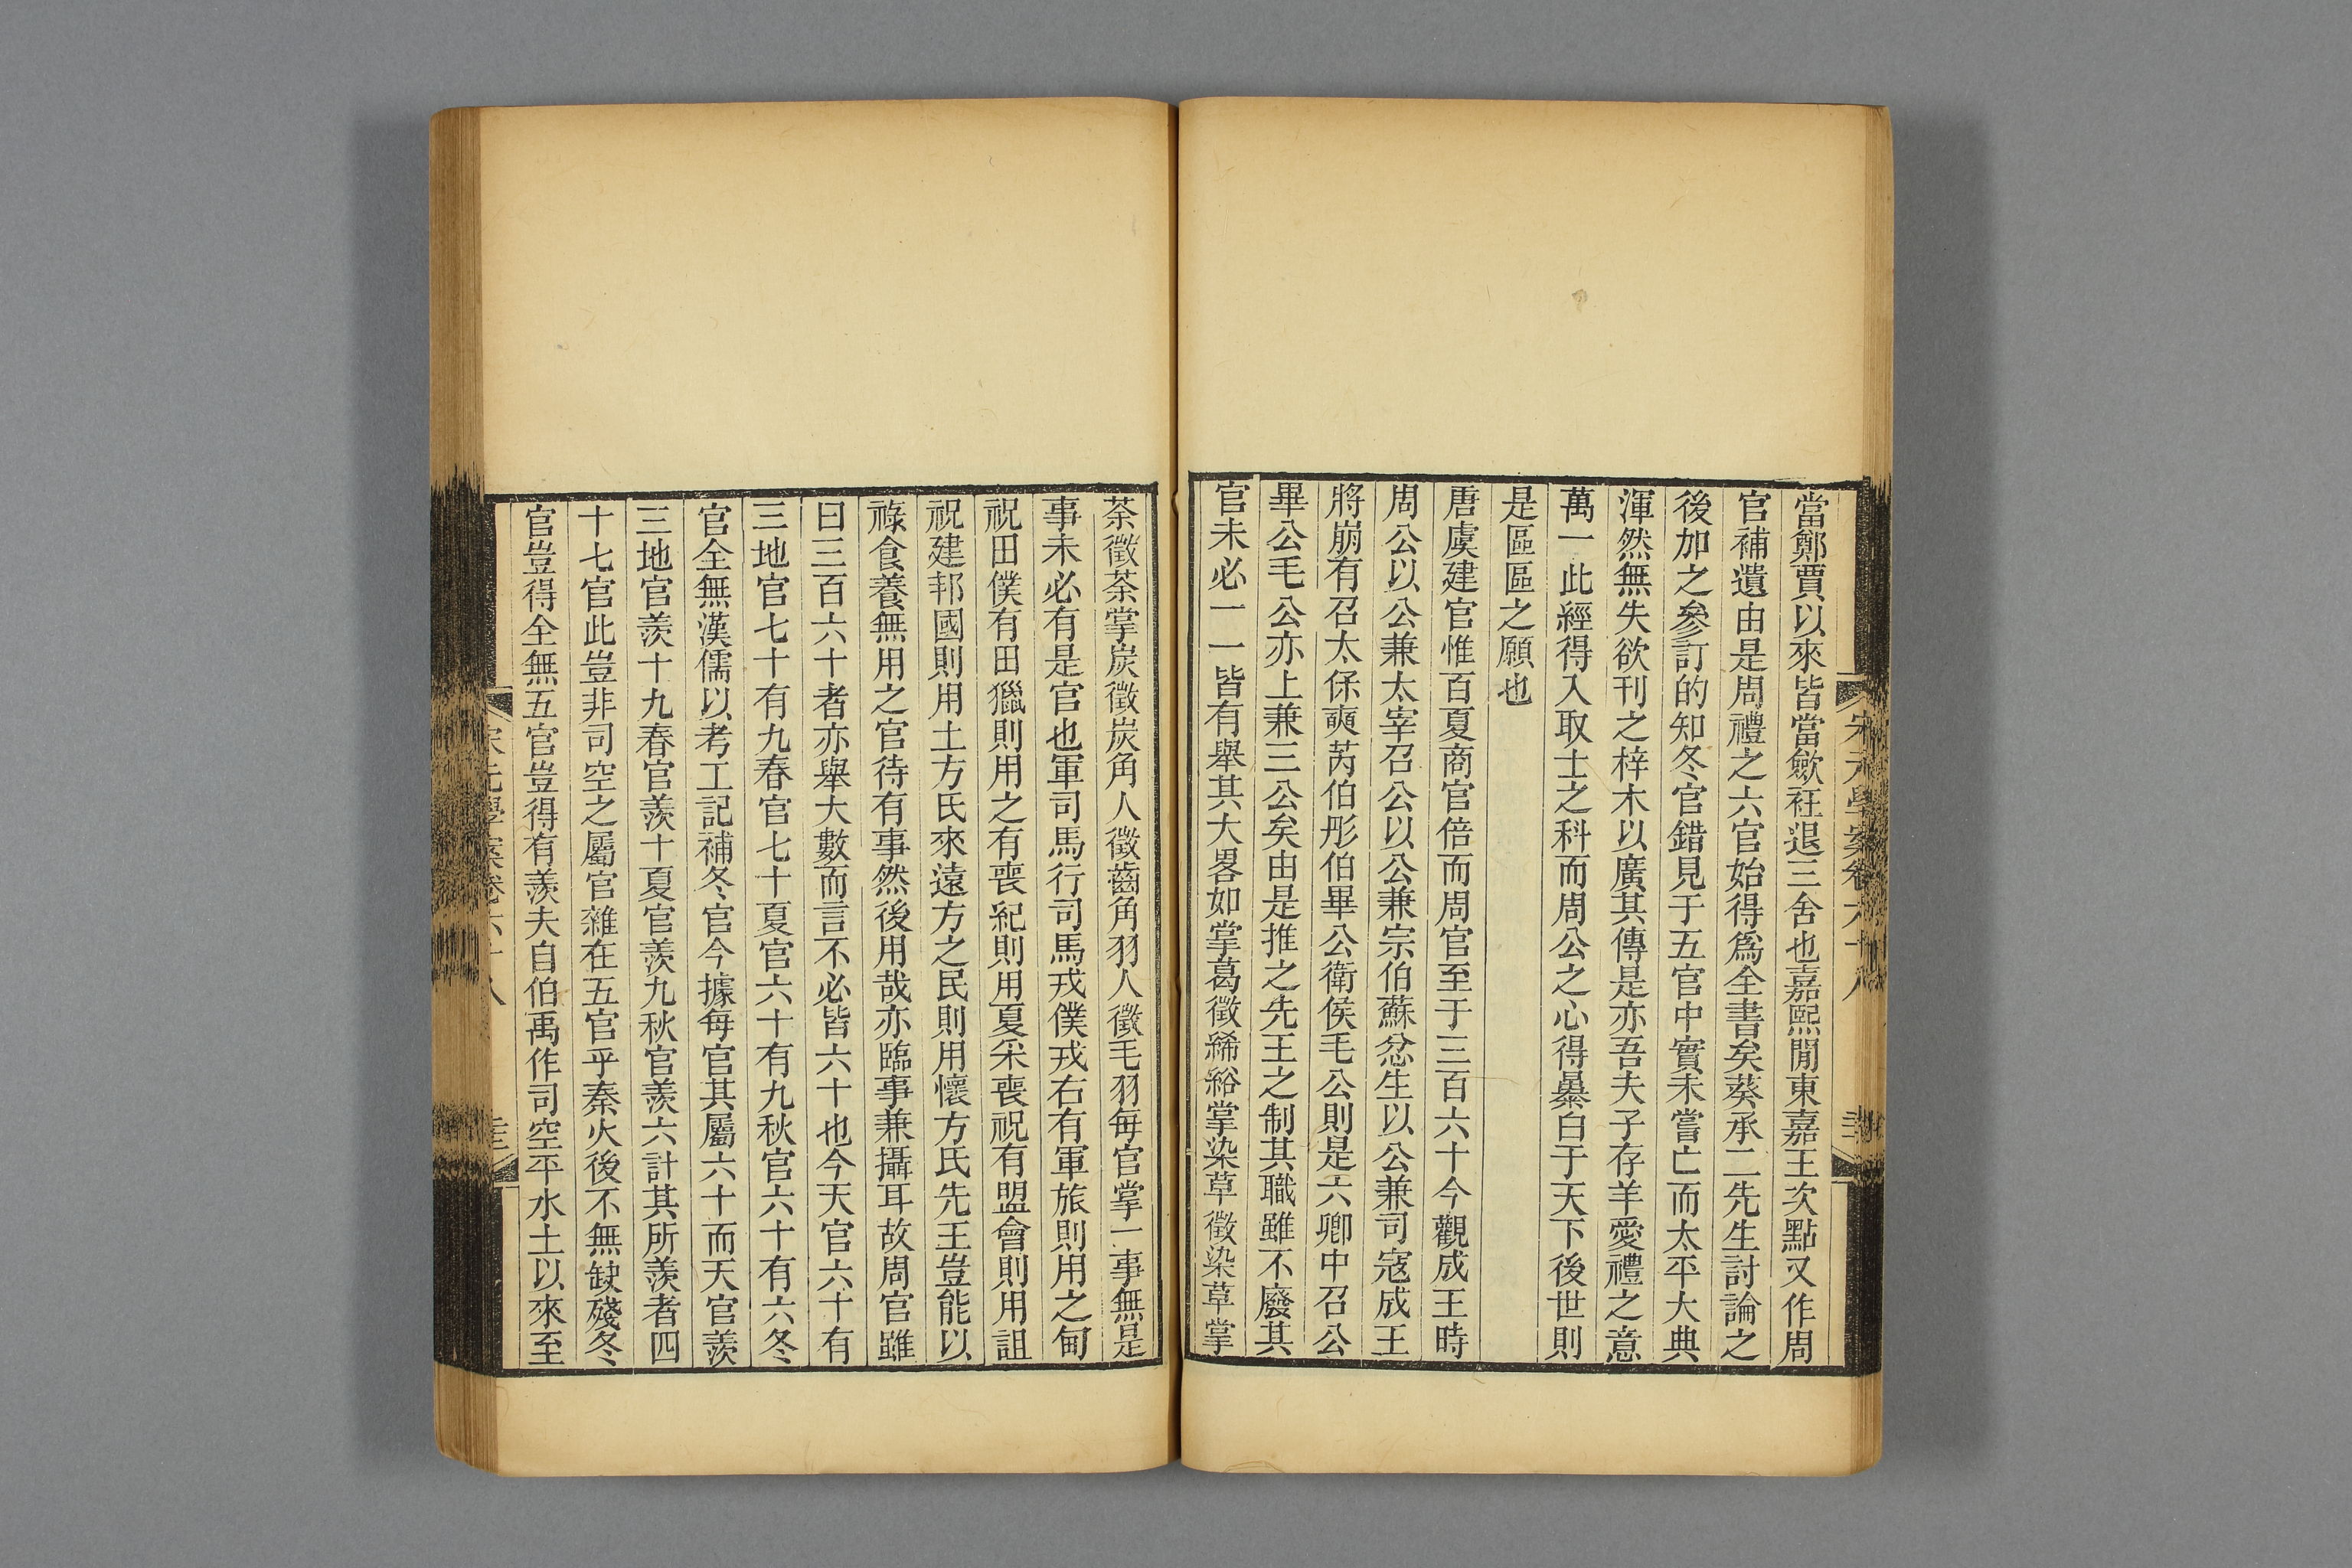 宋元學案卷六十八
當鄭賈以來皆當歛衽退三舍也嘉熙閒東嘉王次點又作周
官補遺由是周禮之六官始得爲全書矣葵承二先生討論之
後加之參訂的知冬官錯見于五官中實未嘗亡而太平大典
渾然無失欲刊之梓木以廣其傳是亦吾夫子存羊愛禮之意
萬一此經得入取士之科而周公之心得暴白于天下後世則
是區區之願也
唐虞建官惟百夏商官倍而周官至于三百六十今觀成王時
周公以公兼太宰召公以公兼宗伯蘇忿生以公兼司寇成王
將崩有召太保奭芮伯彤伯畢公衛侯毛公則是六卿中召公
畢公毛公亦上兼三公矣由是推之先王之制其職雖不廢其
官未必一一皆有舉其大畧如掌葛徵絺綌掌染草徵染草掌
荼徵荼掌炭徵炭角人徵齒角羽人徵毛羽每官掌一事無是
事未必有是官也軍司馬行司馬戎僕戎右有軍旅則用之甸
祝田僕有田獵則用之有喪紀則用夏采喪祝有盟會則用詛
祝建邦國則用土方氏來遠方之民則用懷方氏先王豈能以
祿食養無用之官待有事然後用哉亦臨事兼攝耳故周官雖
曰三百六十者亦舉大數而言不必皆六十也今天官六十有
三地官七十有九春官七十夏官六十有九秋官六十有六冬
官全無漢儒以考工記補冬官今據每官其屬六十而天官羨
三地官羨十九春官羨十夏官羨九秋官羨六計其所羨者四
十七官此豈非司空之屬官雜在五官乎秦火後不無缺殘冬
官豈得全無五官豈得有羨夫自伯禹作司空平水土以來至
宋元學案卷六十八